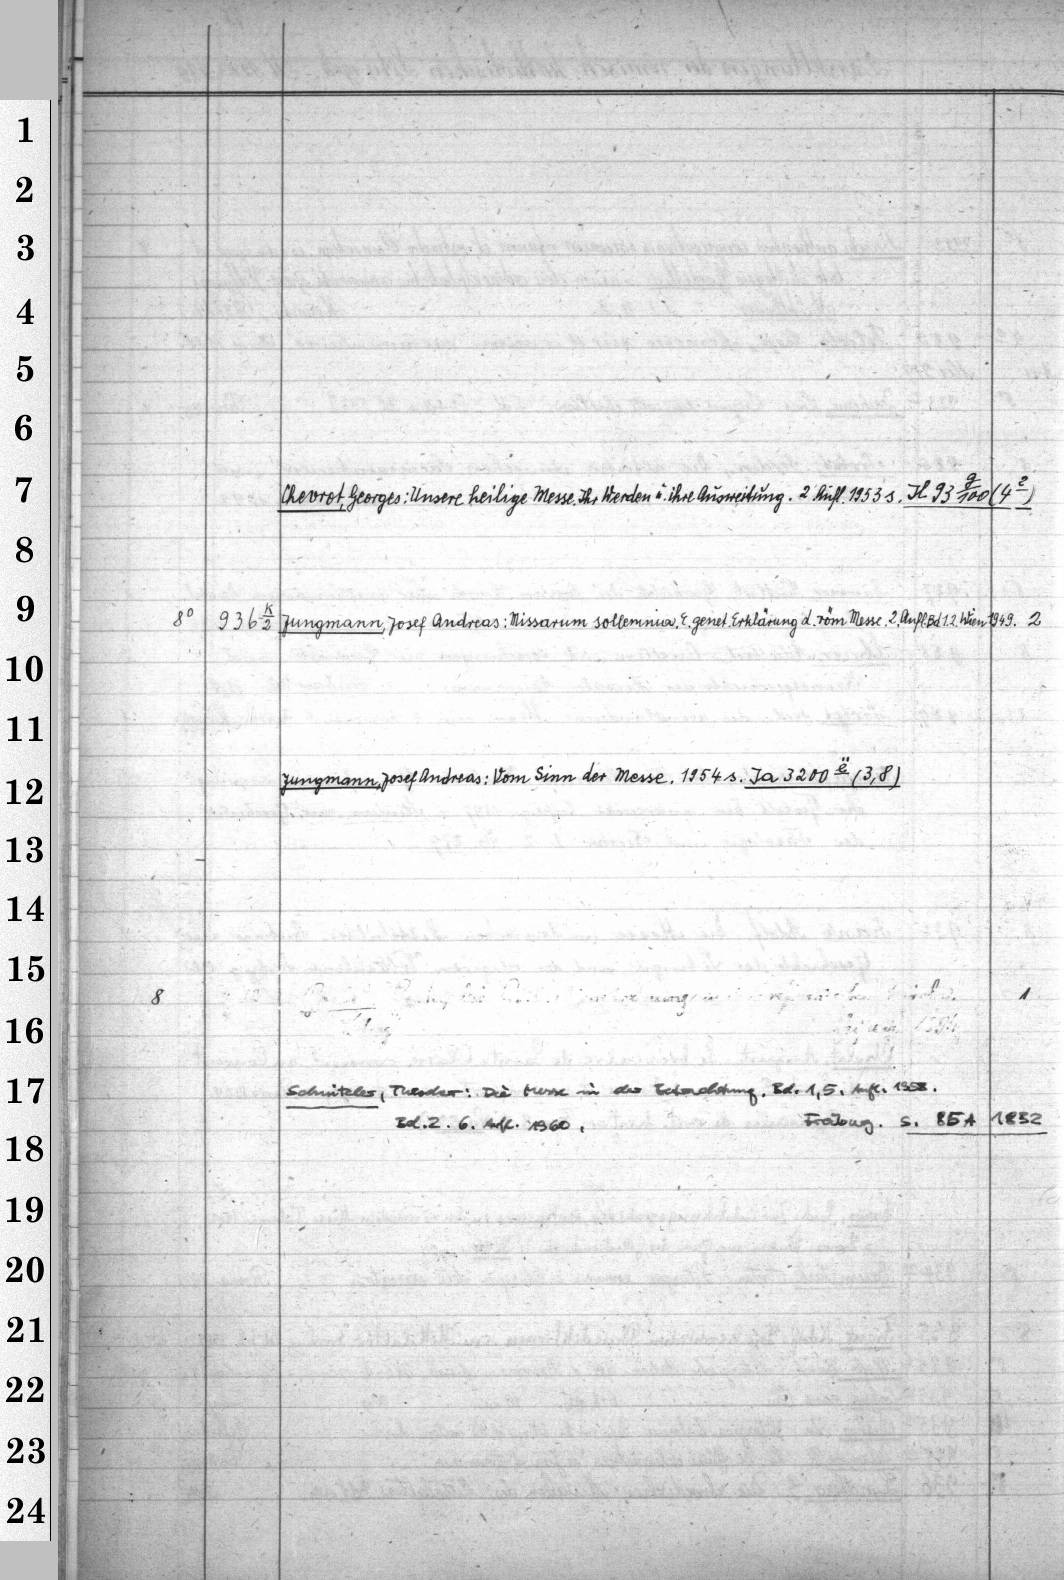 1
2
3
4
5
6
7
Chevrot, Georges: Unsere heilige Messe. Ihr Werden u. ihre Ausweitung. 2. Aufl. 1953 s. Il 93 g/100 (4 2)
8
9
8° 936 K/2 Jungmann, Josef Andreas: Missarum sollemnia. E. genet. Erklärung d. röm Messe. 2. Aufl. Bd 1.2. Wien 1949. 2
10
11
12
Jungmann, Josef Andreas: Vom Sinn der Messe. 1954 s. Ja 3200 ë (3,8)
13
14
15
8 1
16
17
Schnitzler, Theodor: Die Messe in der Betrachtung. Bd. 1, 5. Aufl. 1958.
Bd. 2. 6. Aufl. 1960. Freiburg. s. 85A 1832
18
19
20
21
22
23
24